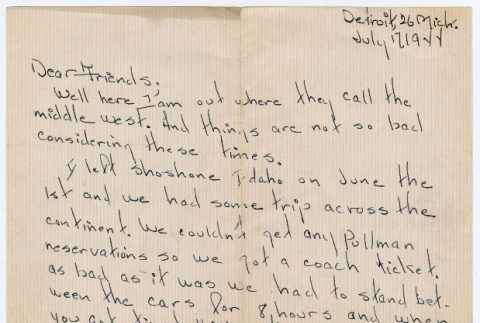 Detroit, 26 Mich.
July 17, 1944
Dear Friends.
Well here I'am out where they call the
middle west. And things are not so bad
considering these times.
I left Shoshone Idaho on June the
1st and we had some trip across the
continent. We couldn't get any Pullman
reservations so we got a coach ticket.
as bad as it was we had to stand bet-
ween the cars for 8, hours and when
you got